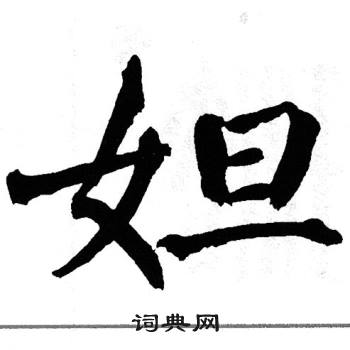 妲
词典网